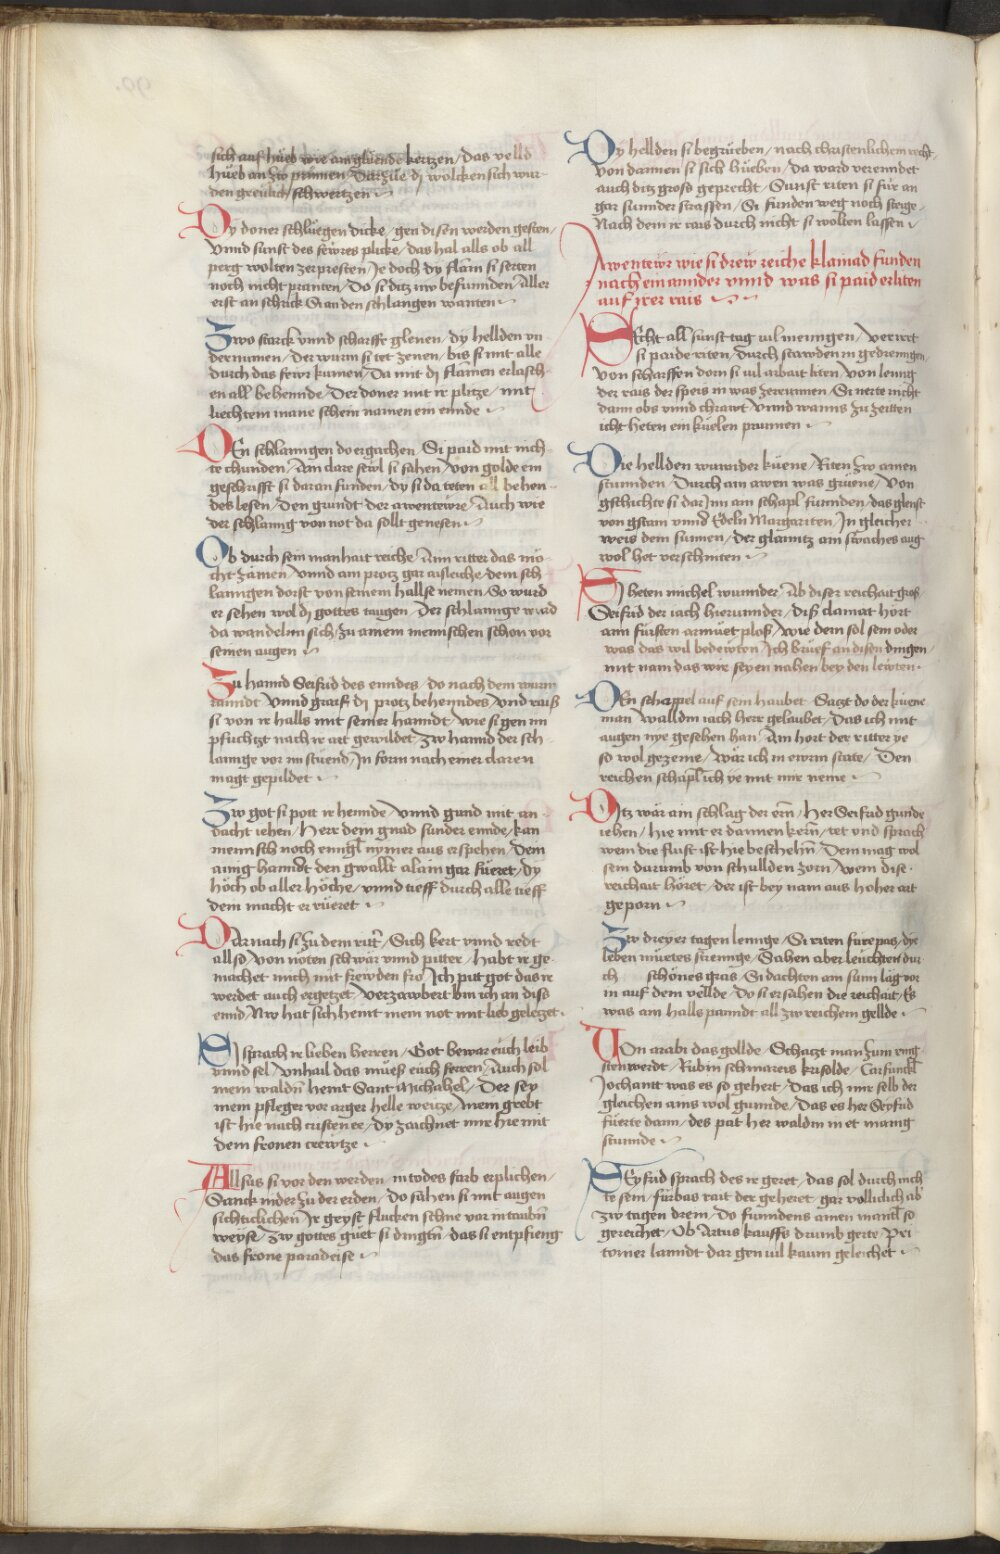 sich auf hueb wie ain gluende kertzen / das velld
hueb an zw prinnen / Darzue dj wolcken sich wur
den greulich schwertzen
Dy doner schluegen dicke / gen disen werden gesten /
Vnnd sunst des fewres plicke / das hal alls ob all
perg wolten zerpresten Je doch dy flam si serten
noch nicht pranten / Do si ditz nw befunnden / Aller
erst an schrick Si an den schlangen wanten
Zwo starck vnnd scharffe glenen / dy hellden vn
dernumen / Der wurm si tet zenen / bis si mit alle
durch das fewr kumen / Da mit dj flamen erlasch
en all behennde / Der doner mit ir plitze / mit
liechtem mane schein namen ein ennde
DEn schlanngen do ersachen / Si paid mit nich
te chunden / Am clare stól si sahen / von golde ein
geschrifft si daran funden / dy si da teten all behen
des lesen / Den grundt der awentewre / Auch wie
der schlanng von not da sollt genesen
Ob durch sein manhait reiche / Ain ritter das mó
cht zamen / Vnnd am protz gar aisleiche / dem sch
lanngen dorst von seinem hallse nemen / So wurd
er sehen wol dj gottes taugen / Der schlannge wurd
da wandeln sich / zu ainem mennschen schon vor
seinen augen
Zu hannd Seifrid des enndes / do nach dem wurm
ranndt Vnnd graif dj protz behenndes / Vnd raiß
si von ir halls mit seiner hanndt / wie si gen im
pfuchtzt nach ir art gewildet / Zw hannd der sch
lannge vor im stuend / In form nach einer claren
magt gepildet
Zw got si pott ir hennde / Vnnd gund mit an
dacht iehen / Herr dem gnad sunder ennde / kan
mennsch noch enngl nymer aus erspehen / Dem
ainig hanndt den gwallt alain gar füeret / dy
höch ob aller höche / vnnd tieff durch alle tieff
dem macht er rüeret
DArnach si zu dem ritr / Sich kert vnnd redt
allso / von nöten schwär vnnd pitter / habt ir ge
machet mich mit frewden fro / Ich pitt got das ir
werdet auch ergetzet / verzawbert bin ich an diss
ennd / Nw hat sich heint mein not mit lieb geletzet
SI sprach ir lieben herren / Got bewar euch leib
vnnd sel / Vnhail das mueß euch ferren / Auch sol
mein waldn heint Sant Michahel / Der sey
mein pfleger vor arger helle weitze / mein grebt
ist hie nach cristen ee / dy zaichnet mir hie mit
dem fronen creẃtze
Allsus si vor den werden / in todes farb erplichen /
Sanck nider zu der erden / do sahen si mit augen
sichticlichen / Ir geyst flucken schne vor in taubn
weyse / Zw gottes guet si dingtn / das si entpfieng
das frone paradeise
Dy hellden si begrueben / nach christenlichem recht
von dannen si sich hueben / Da ward verenndet
auch ditz gross geprecht / Sunst riten si für an
gar sunnder strassen / Si funden weg noch steige
Nach dem ir rais durch nicht si wolten lassen
Awentewr wie si drew reiche klainad funden
nach einannder vnnd was si paid erliten
auf irer rais
SEcht all sunst tag vil mennigen / verirrt
si paide riten / durch stawden in gedrenngen /
von scharffen dorn si vil arbait liten / von lenng
der rais der speis in was zerrunnen / Si nerte nicht
dann obs vnnd chrawt / Vnnd wanns zu zeitten
icht heten ein kuelen prunnen
Die hellden wunnder kuene / Riten zw ainen
stunnden / Durch ain awen was gruene / Von
gschichte si darInn ain schapl funnden / das glenst
von gstain vnnd Edeln Margariten / In gleicher
weis dem sunnen / der glanntz ain swaches aug
wol het verschniten
SI heten michel wunnder / Ab diser reichait groß
Seifrid der iach hierunnder / diß clainat hört
ann fursten armuet ploß / wie dem sol sein oder
was das wil bedewten / Ich bruef an disen dingen
mit nam das wir seyen nahen bey den lewten
DEn schappel auf sein haubet / Satzt do der kuene
man / Walldin iach herr gelaubet / Das ich mit
augen nye gesehen han / Ain hort der ritter ye
so wol gezeme / Wär ich in ewrm state / Den
reichen schapl ich ye mit mir neme
DItz wär ain schlag der ern / Her Seifrid gunde
iehen / hie mit er dannen kern / tet vnd sprach
wem die flust ist hie beschehn / Dem mag wol
sein darumb von schullden zorn / wem dise
reichait höret / der ist bey nam aus hoher art
geporn
Zw dreyer tagen lennge / Si riten fürepas / dye
leben muetes strennge / Sahen aber leuchten dur
ch schönes gras / Si dachten am sunn lag vor
in auf dem vellde / do si ersahen die reichait / Es
was ain halls panndt all zw reichem gellde
VOn arabi das gollde / Schatzt man zum ring
sten werdt / Rubin schmareis krisolde / Carfunckl
Jochannt was es so gehert / Das ich mir selb der
gleichen ains wol gunnde / Das es her Seyfrid
fuerte dann / des pat her waldin in et manig
stunnde
SEyfrid sprach des ir geret / das sol durch nich
te sein / fürbas rait der geheret / gar vollicklich ab
zw tagen drein / Do funndens ainen mantl so
gereichet / Ob Artus kauffs drumb gerte / Pri
toner lanndt dar gen vil kaum geleichet